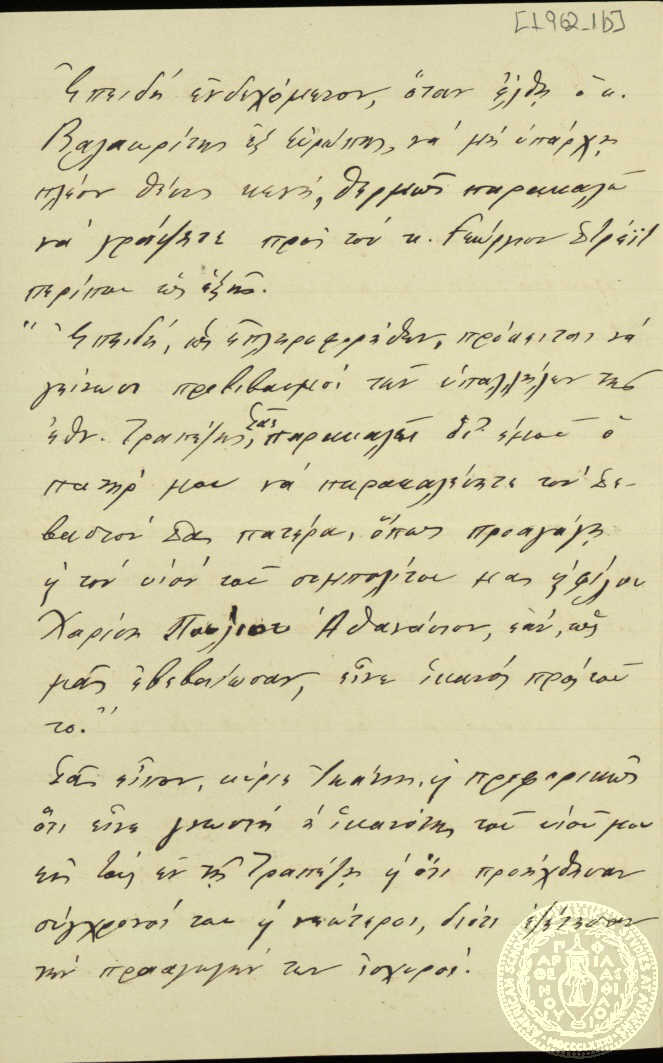 [1962_1b]
Ἐπειδὴ ἐνδεχόμενον, ὅταν ἔλθῃ ὁ κ.
Βαλαωρίτης ἐξ Εὐρώπης, νὰ μὴ ὑπάρχῃ
πλέον θέσις κενή, θερμῶς παρακαλῶ
νὰ γράψετε πρὸς τὸν κ. Γεώργιον Στρέϊτ
περίπου ὡς ἑξῆς.
"Ἐπειδή, ὡς ἐπληροφορήθην, πρόκειται νὰ
γείνωσι προβιβασμοὶ τῶν ὑπαλλήλων τῆς
Ἐθν. Τραπέζης, Σᾶς παρακαλεῖ δι' ἐμοῦ ὁ
πατήρ μου νὰ παρακαλέσητε τὸν Σε-
βαστόν Σας πατέρα, ὅπως προαγάγῃ
κ τὸν υἱὸν τοῦ συμπολίτου μας κ φίλου
Χαρίση Πουλίου Ἀθανάσιον, ἐάν, ὡς
μᾶς ἐβεβαίωσαν, εἶνε ἱκανὸς πρὸς τοῦ
το."
Σᾶς εἶπον, κύριε Ἰωάννη, κ προφορικῶς
ὅτι εἶνε γνωστὴ ἡ ἱκανότης τοῦ υἱοῦ μου
εἰς τοὺς ἐν τῇ Τραπέζῃ κ ὅτι προήχθησαν
σύγχρονοί του κ νεώτεροι, διότι ἐζήτησαν
τὴν προαγωγήν των ἰσχυροί.